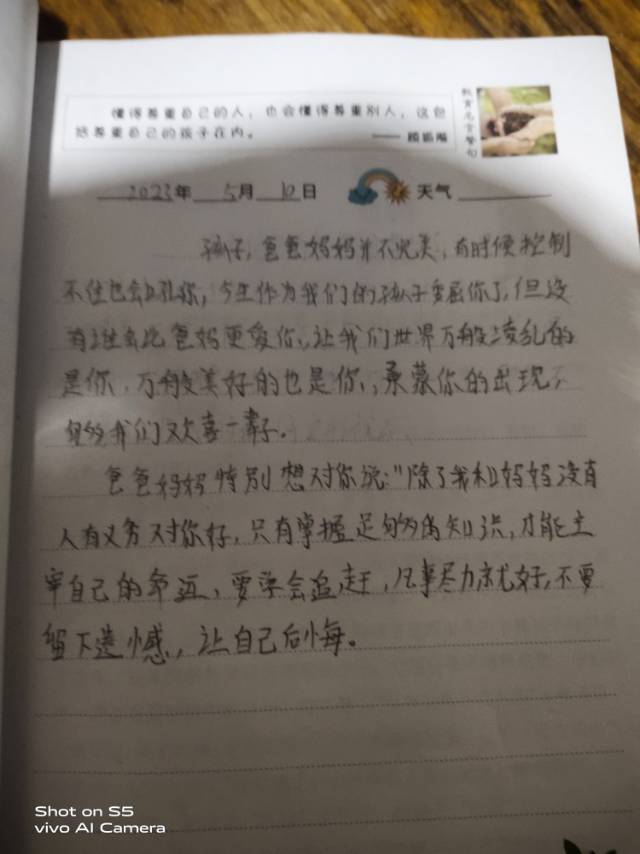 懂得尊重自己的人，也会懂得尊重别人，这包
括尊重自己的孩子在内。
——顾晓鸣
教育名言警句
2023年 5月 10日 天气
孩子，爸爸妈妈并不完美，有时候控制
不住也会乱你，今生作为我们的孩子委屈你了，但没
有谁会比爸妈更爱你，让我们世界万般凌乱的
是你，万般美好的也是你，承蒙你的出现，
够我们欢喜一辈子。
爸爸妈妈特别想对你说："除了我和妈妈没有
人有义务对你好，只有掌握足够的知识，才能主
宰自己的命运，要学会追赶，凡事尽力就好，不要
留下遗憾，让自己后悔。
Shot on S5
vivo AI Camera